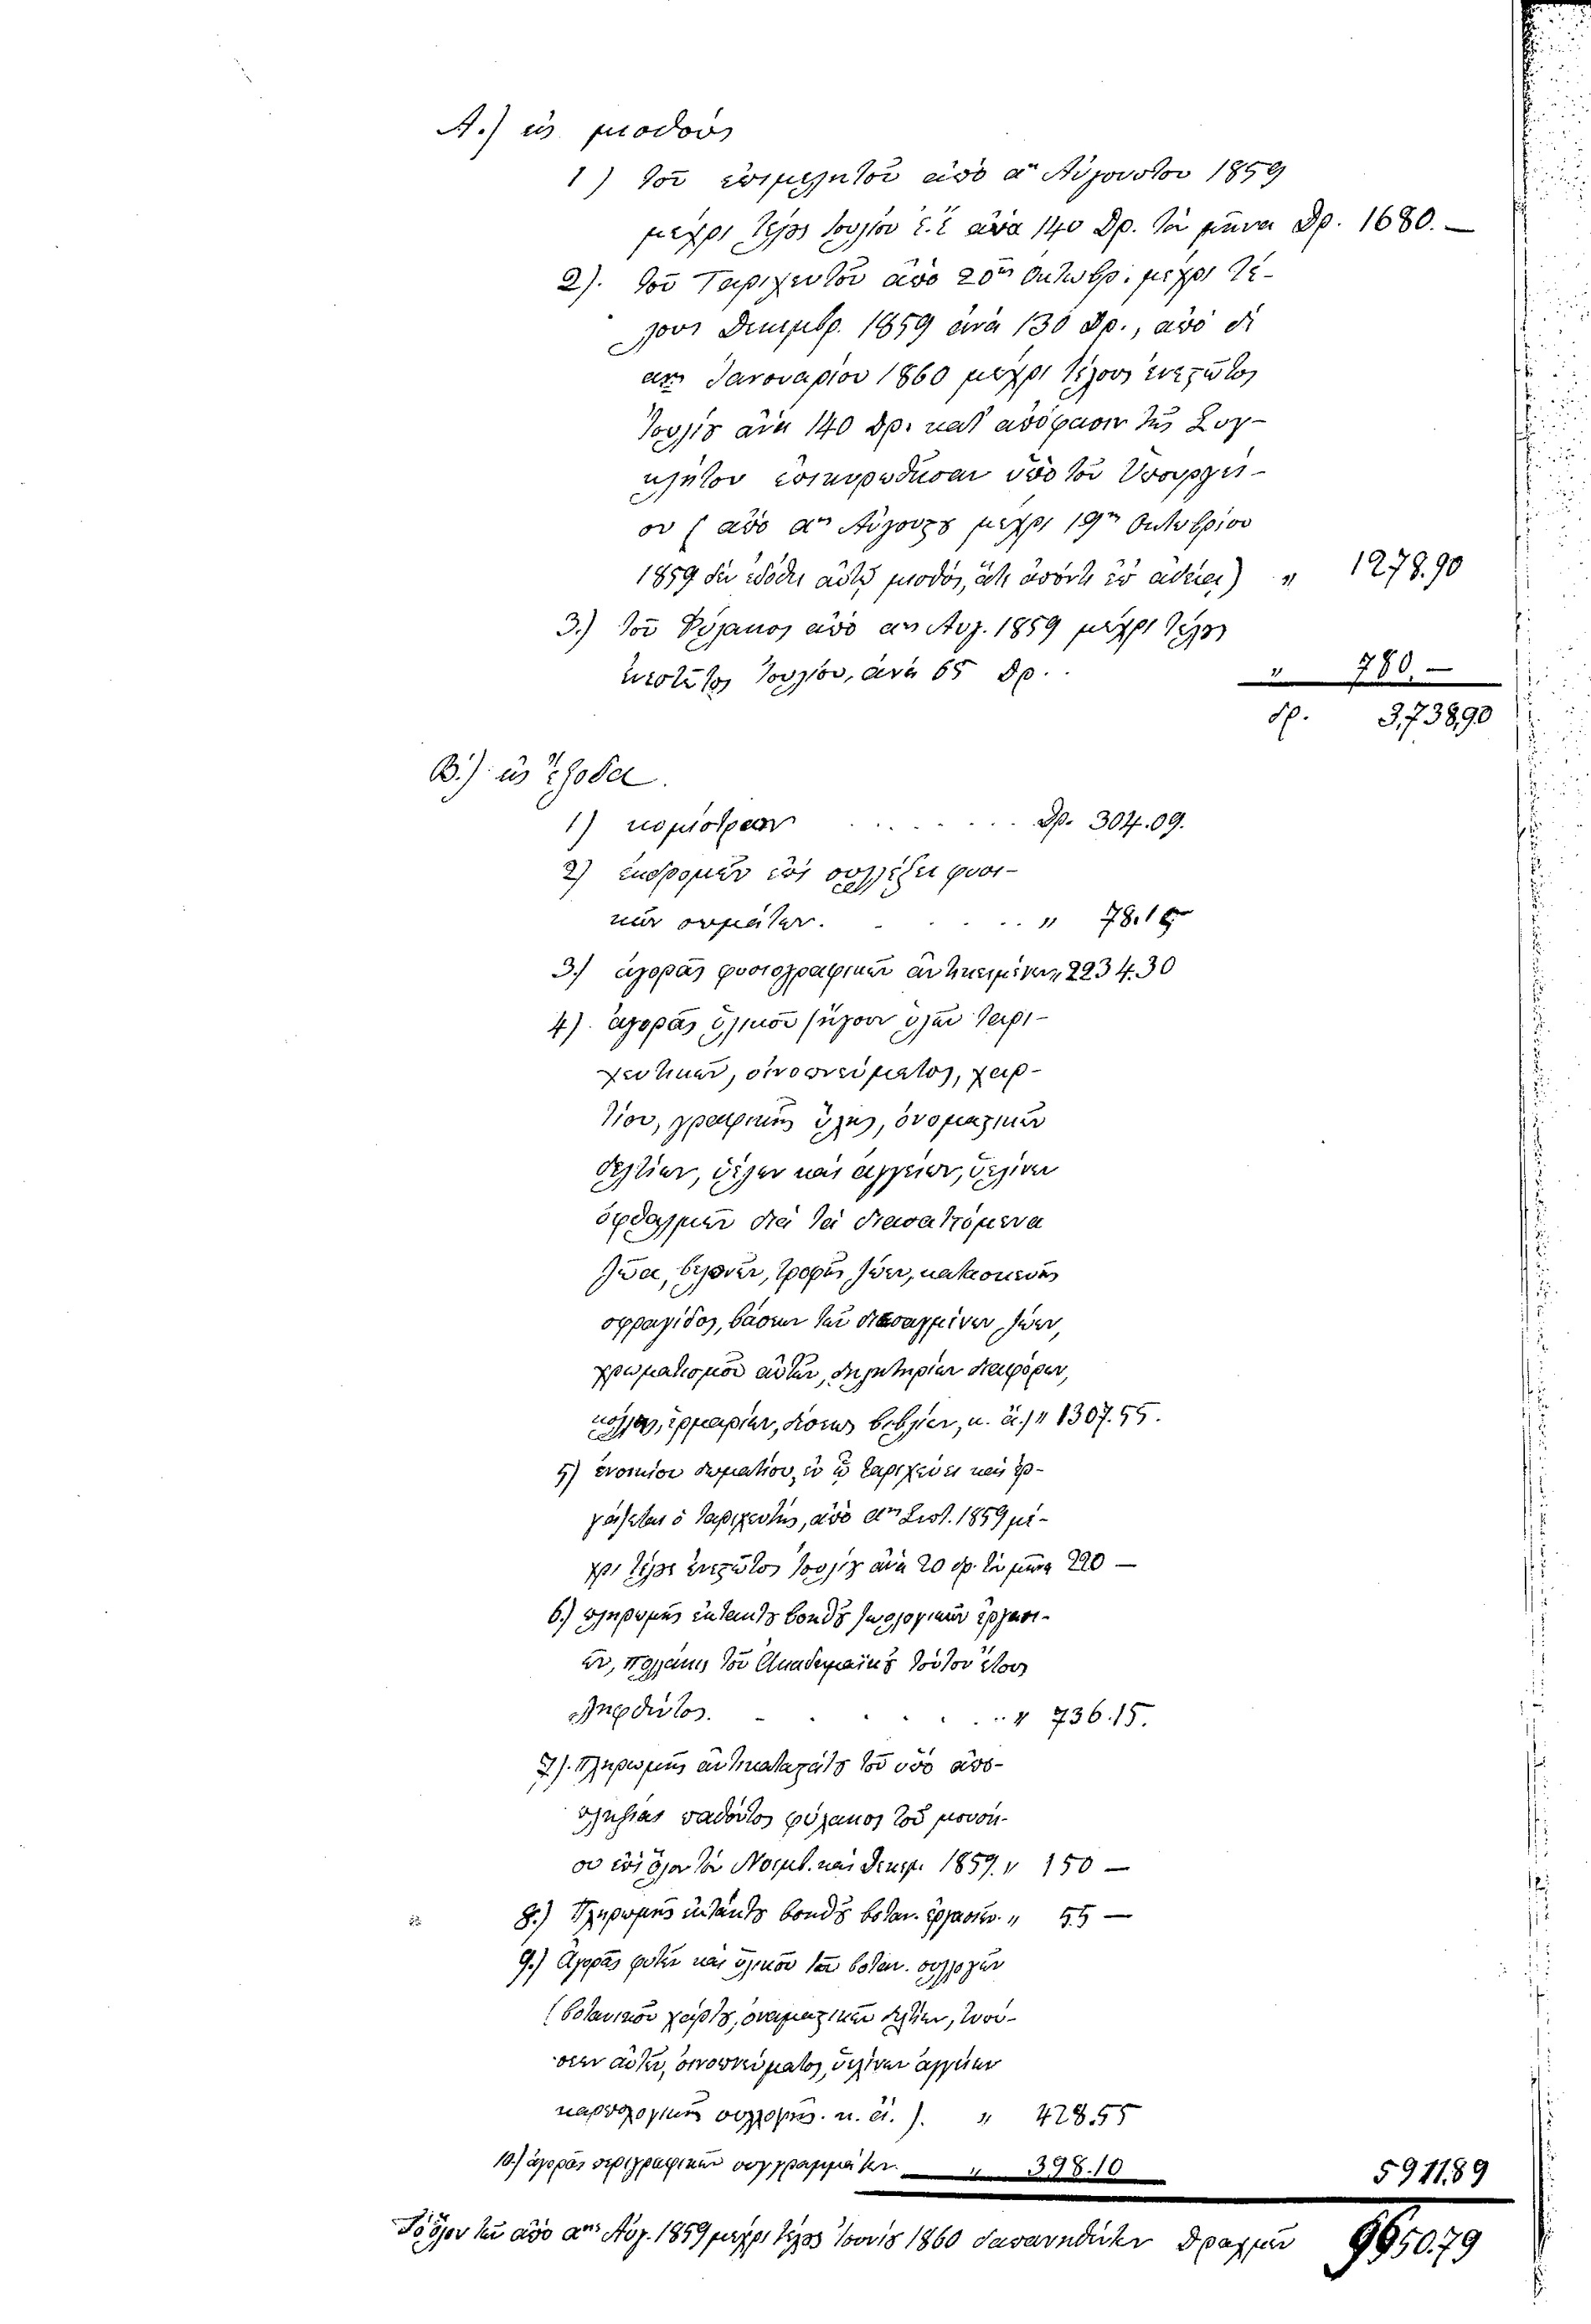 Α.) εἰς μισθοὺς
1) τοῦ ἐπιμελητοῦ ἀπὸ αης Αὐγούστου 1859
μέχρι τέλος Ἰουλίου ἐ.ἔ ἀνὰ 140 Δρ. τὸν μῆνα Δρ. 1680.—
2). τοῦ Ταριχευτοῦ ἀπὸ 20ης Ὀκτωβρ. μέχρι τέ-
λους Δεκεμβρ. 1859 ἀνὰ 130 Δρ., ἀπὸ δὲ
αης Ἰανουαρίου 1860 μέχρι τέλους ἐνεστῶτος
Ἰουλίου ἀνὰ 140 Δρ. κατ' ἀπόφασιν τῆς Συγ-
κλήτου ἐπικυρωθεῖσαν ὑπὸ τοῦ Ὑπουργεί-
ου (ἀπὸ αης Αὐγούστου μέχρι 19ης Ὀκτωβρίου
1859 δὲν ἐδόθη αὐτῷ μισθός, ἅτε ἀπόντι ἐπ' ἀδείᾳ) " 1278.90
3.) τοῦ Φύλακος ἀπὸ αης Αὐγ. 1859 μέχρι τέλος
ἐνεστῶτος Ἰουλίου, ἀνὰ 65 Δρ. . " 780.—
δρ. 3,738,90
Β.) εἰς ἔξοδα.
1) κομίστρων . . . . . . . Δρ. 304.09.
2) ἐκδρομῶν ἐπὶ συλλέξει φυσι-
κῶν σωμάτων. . . . . . " 78.15
3.) ἀγορᾶς φυσιογραφικῶν ἀντικειμένων " 2234.30
4). ἀγορᾶς ὑλικοῦ (ἤγουν ὑλῶν ταρι-
χευτικῶν, οἰνοπνεύματος, χαρ-
τίου, γραφικῆς ὕλης, ὀνομαστικῶν
δελτίων, ὑέλων καὶ ἀγγείων, ὑελίνων
ὀφθαλμῶν διὰ τὰ διασαττόμενα
ζῶα, βελονῶν, τροφῆς ζώων, κατασκευῆς
σφραγίδος, βάσεων τῶν διασαγμένων ζώων,
χρωματισμοῦ αὐτῶν, δηλητηρίων διαφόρων,
κόλλας, ἑρμαρίων, δέσεως βιβλίων, κ. ἄ.) " 1307.55.
5) ἐνοικίου δωματίου, ἐν ᾧ ταριχεύει καὶ ἐρ-
γάζεται ὁ ταριχευτής, ἀπὸ αης Σεπτ. 1859 μέ-
χρι τέλος ἐνεστῶτος Ἰουλίου ἀνὰ 20 δρ. τὸν μῆνα 220 —
6.) πληρωμῆς ἐκτάκτου βοηθοῦ ζωολογικῶν ἐργασι-
ῶν, πολλάκις τοῦ Ἀκαδημαϊκοῦ τούτου ἔτους
ληφθέντος. . . . . . . " 736.15.
7). Πληρωμῆς ἀντικαταστάτου τοῦ ὑπὸ ἀπο-
πληξίας παθόντος φύλακος τοῦ μουσεί-
ου ἐπὶ ὅλον τὸν Νοεμβ. καὶ Δεκεμ. 1859. " 150 —
8.) Πληρωμῆς ἐκτάκτου βοηθοῦ βοταν. ἐργασιῶν. " 55 —
9.) Ἀγορᾶς φυτῶν καὶ ὑλικοῦ τῶν βοταν. συλλογῶν
(βοτανικοῦ χάρτου, ὀνομαστικῶν δελτίων, τυπώ-
σεων αὐτῶν, οἰνοπνεύματος, ὑελίνων ἀγγείων
καρπολογικῆς συλλογῆς. κ. ἄ. ). " 428.55
10.) ἀγορᾶς περιγραφικῶν συγγραμμάτων. " 398.10 5911.89
Τὸ ὅλον τῶν ἀπὸ αης Αὐγ. 1859 μέχρι τέλος Ἰουλίου 1860 δαπανηθέντων Δραχμῶν 9650.79